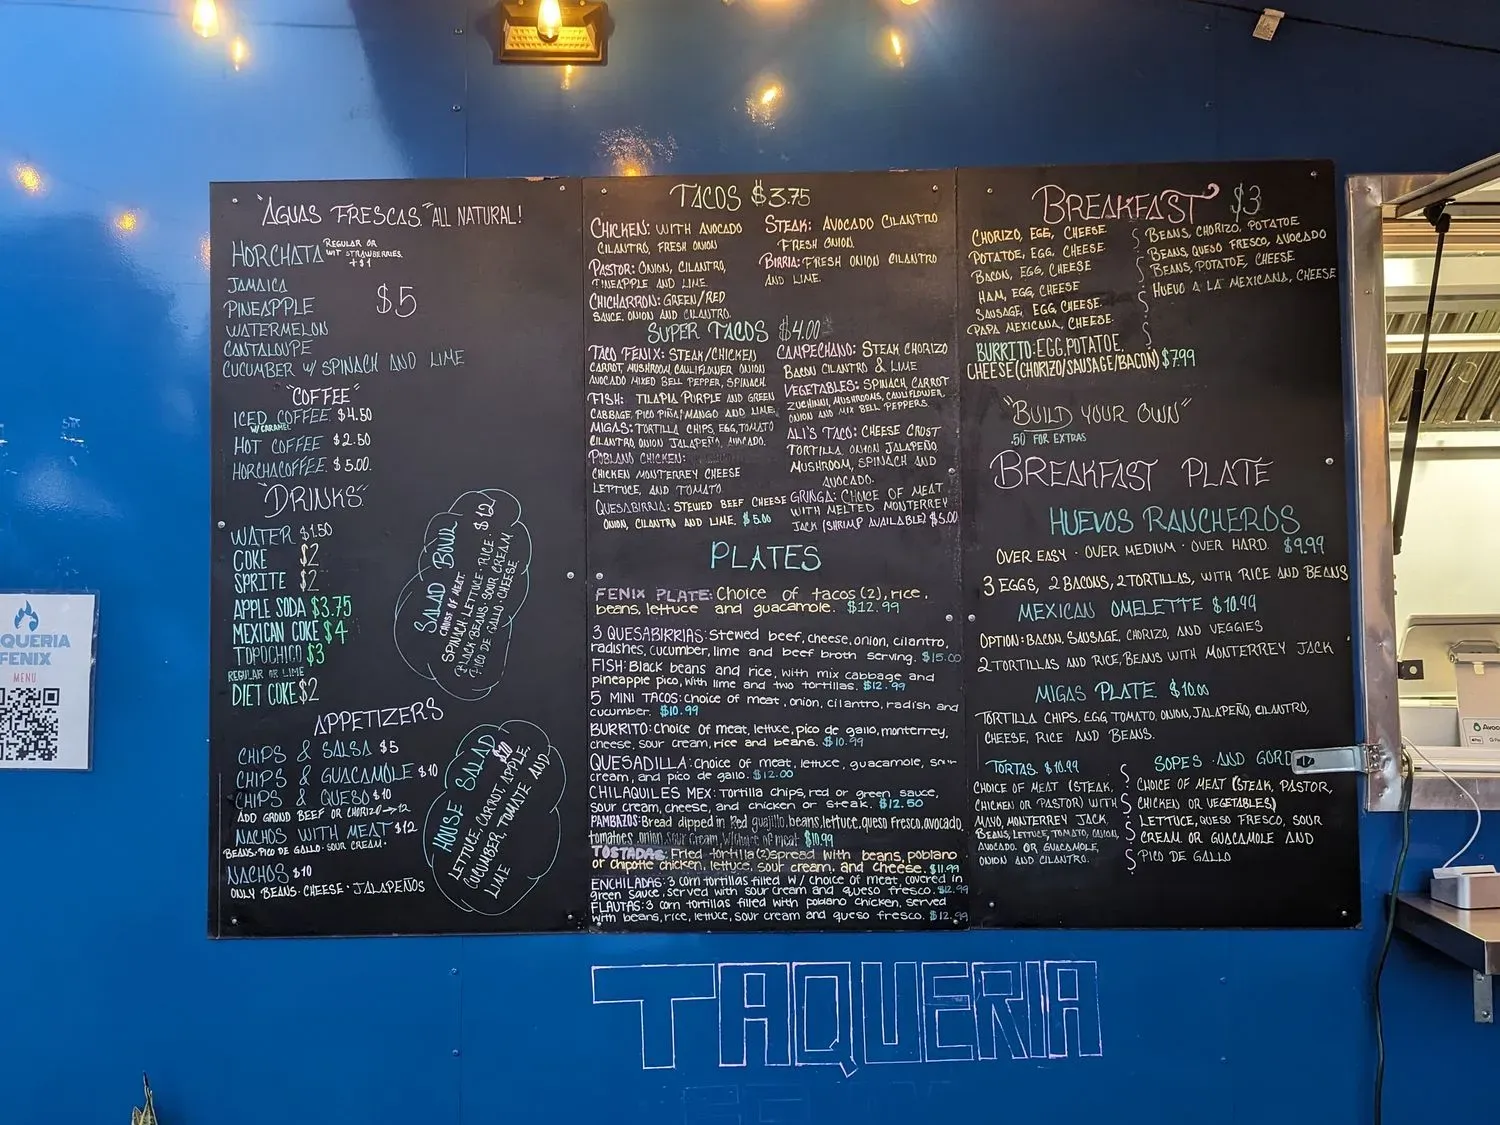 "AGUAS FRESCAS" ALL NATURAL!
HORCHATA REGULAR OR
WIT STRAWBERRIES
+$1
JAMAICA
PINEAPPLE $5
WATERMELON
CANTALOUPE
CUCUMBER W/ SPINACH AND LIME
"COFFEE"
ICED COFFEE $4.50
W/ CARAMEL
HOT COFFEE $2.50
HORCHACOFFEE. $5.00.
"DRINKS"
WATER $1.50
COKE $2
SPRITE $2
APPLE SODA $3.75
MEXICAN COKE $4
TOPOCHICO $3
REGULAR OR LIME
DIET COKE $2
SALAD BOWL $12
CHOISE OF MEAT
SPINACH · LETTUCE · RICE ·
BLACK BEANS · SOUR CREAM
PICO DE GALLO CHEESE
APPETIZERS
CHIPS & SALSA $5
CHIPS & GUACAMOLE $10
CHIPS & QUESO $10
ADD GROND BEEF OR CHORIZO→12
NACHOS WITH MEAT $12
BEANS · PICO DE GALLO · SOUR CREAM ·
NACHOS $10
ONLY BEANS · CHEESE · JALAPEÑOS
HOUSE SALAD
LETTUCE, CARROT, APPLE,
CUCUMBER, TOMATE AND
LIME
TACOS $3.75
CHICKEN: WITH AVOCADO
CILANTRO, FRESH ONION
PASTOR: ONION, CILANTRO,
PINEAPPLE AND LIME.
CHICHARRON: GREEN/RED
SAUCE, ONION AND CILANTRO.
STEAK: AVOCADO CILANTRO
FRESH ONION
BIRRIA: FRESH ONION CILANTRO
AND LIME.
SUPER TACOS $4.00
TACO FENIX: STEAK/CHICKEN
CARROT, MUSHROOM, CAULIFLOWER, ONION
AVOCADO MIXED BELL PEPPER, SPINACH
FISH: TILAPIA PURPLE AND GREEN
CABBAGE, PICO PIÑA/MANGO AND LIME.
MIGAS: TORTILLA CHIPS, EGG, TOMATO
CILANTRO, ONION JALAPEÑO, AVOCADO.
POBLANO CHICKEN:
CHICKEN MONTERREY CHEESE
LETTUCE, AND TOMATO.
QUESABIRRIA: STEWED BEEF CHEESE
ONION, CILANTRO AND LIME. $5.00
CAMPECHANO: STEAK CHORIZO
BACON CILANTRO & LIME
VEGETABLES: SPINACH, CARROT
ZUCHINNI, MUSHROOMS, CAULIFLOWER,
ONION AND MIX BELL PEPPERS.
ALI'S TACO: CHEESE CRUST
TORTILLA, ONION JALAPEÑO
MUSHROOM, SPINACH AND
AVOCADO.
GRINGA: CHOICE OF MEAT
WITH MELTED MONTERREY
JACK (SHRIMP AVAILABLE) $5.00
PLATES
FENIX PLATE: Choice of tacos (2), rice,
beans, lettuce and guacamole. $12.99
3 QUESABIRRIAS: Stewed beef, cheese, onion, cilantro,
radishes, cucumber, lime and beef broth serving. $15.00
FISH: Black beans and rice, with mix cabbage and
pineapple pico, with lime and two tortillas. $12.99
5 MINI TACOS: choice of meat, onion, cilantro, radish and
cucumber. $10.99
BURRITO: choice of meat, lettuce, pico de gallo, monterrey,
cheese, sour cream, rice and beans. $10.99
QUESADILLA: choice of meat, lettuce, guacamole, sour
cream, and pico de gallo. $12.00
CHILAQUILES MEX: Tortilla chips, red or green sauce,
sour cream, cheese, and chicken or steak. $12.50
PAMBAZOS: Bread dipped in Red guajillo, beans, lettuce, queso fresco, avocado,
tomatoes, onion, sour cream, W/choice of meat $10.99
TOSTADAS: Fried tortilla (2) spread with beans, poblano
or chipotle chicken, lettuce, sour cream, and cheese. $11.99
ENCHILADAS: 3 corn tortillas filled w/ choice of meat, covered in
green sauce, served with sour cream and queso fresco. $12.99
FLAUTAS: 3 corn tortillas filled with poblano chicken, served
with beans, rice, lettuce, sour cream and queso fresco. $12.99
BREAKFAST $3
CHORIZO, EGG, CHEESE
POTATOE, EGG, CHEESE
BACON, EGG, CHEESE
HAM, EGG, CHEESE
SAUSAGE, EGG, CHEESE.
PAPA MEXICANA, CHEESE.
BEANS, CHORIZO, POTATOE
BEANS, QUESO FRESCO, AVOCADO
BEANS, POTATOE, CHEESE.
HUEVO A LA MEXICANA, CHEESE
BURRITO: EGG, POTATOE,
CHEESE (CHORIZO/SAUSAGE/BACON) $7.99
"BUILD YOUR OWN"
.50 FOR EXTRAS
BREAKFAST PLATE
HUEVOS RANCHEROS
OVER EASY · OVER MEDIUM · OVER HARD. $9.99
3 EGGS, 2 BACONS, 2 TORTILLAS, WITH RICE AND BEANS
MEXICAN OMELETTE $10.99
OPTION: BACON, SAUSAGE, CHORIZO, AND VEGGIES
2 TORTILLAS AND RICE, BEANS WITH MONTERREY JACK
MIGAS PLATE $10.00
TORTILLA CHIPS, EGG, TOMATO, ONION, JALAPEÑO, CILANTRO,
CHEESE, RICE AND BEANS.
TORTAS $10.99
CHOICE OF MEAT (STEAK,
CHICKEN OR PASTOR) WITH
MAYO, MONTERREY JACK,
BEANS, LETTUCE, TOMATO, ONION,
AVOCADO. OR GUACAMOLE,
ONION AND CILANTRO.
SOPES · AND GORD
CHOICE OF MEAT (STEAK, PASTOR,
CHICKEN OR VEGETABLES)
LETTUCE, QUESO FRESCO, SOUR
CREAM OR GUACAMOLE AND
PICO DE GALLO
QUERIA
FENIX
MENU
TAQUERIA